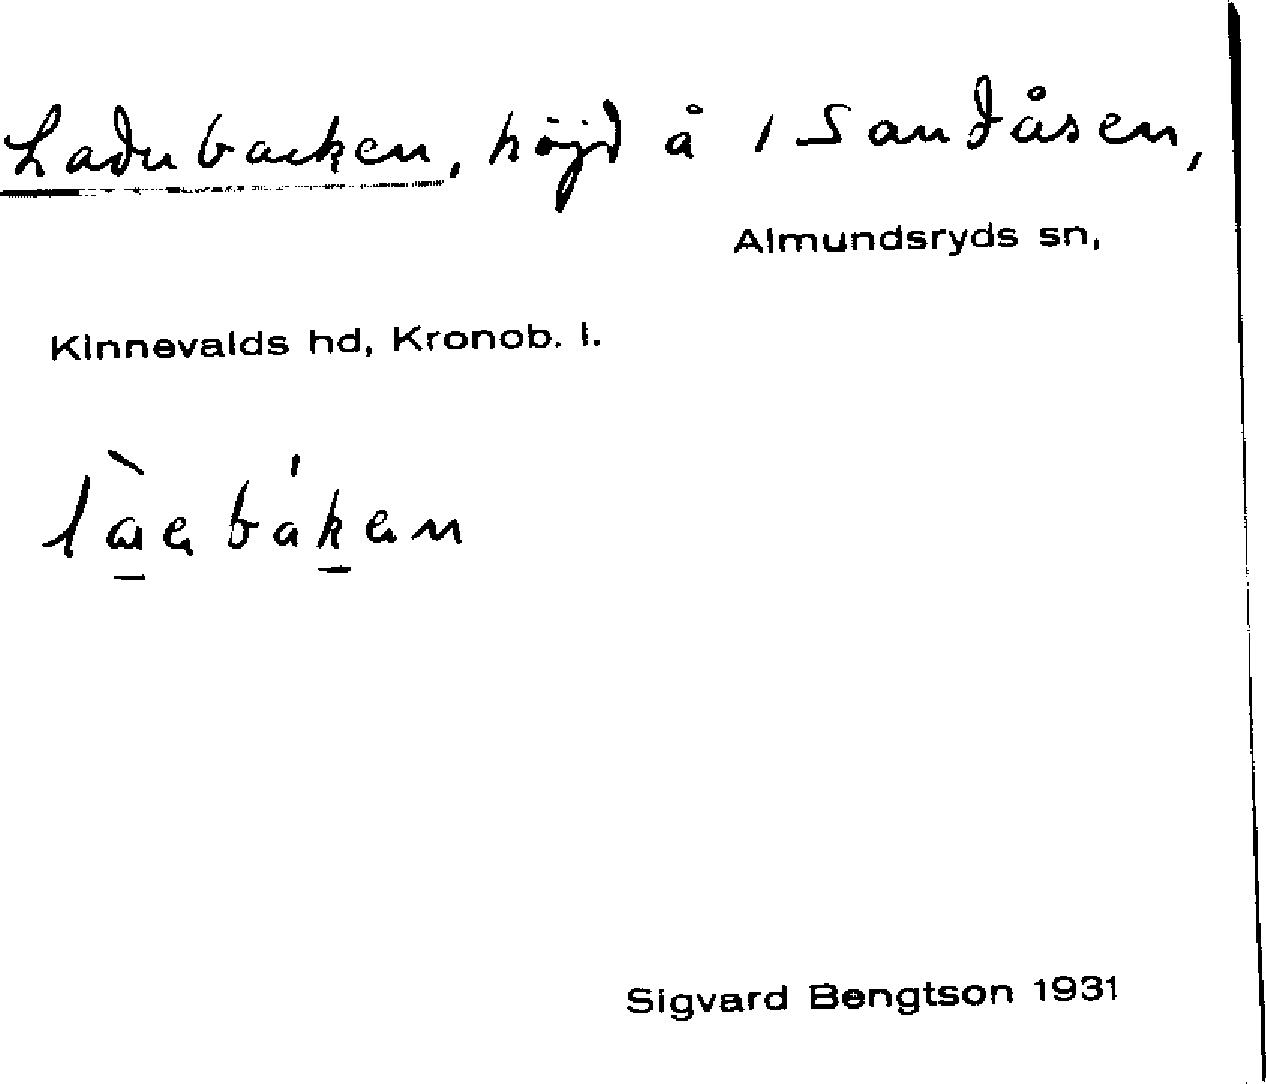 Ladubacken, höjd å 1 Sandåsen,
Almundsryds sn,
Kinnevalds hd, Kronob. l.
Sigvard Bengtson 1931